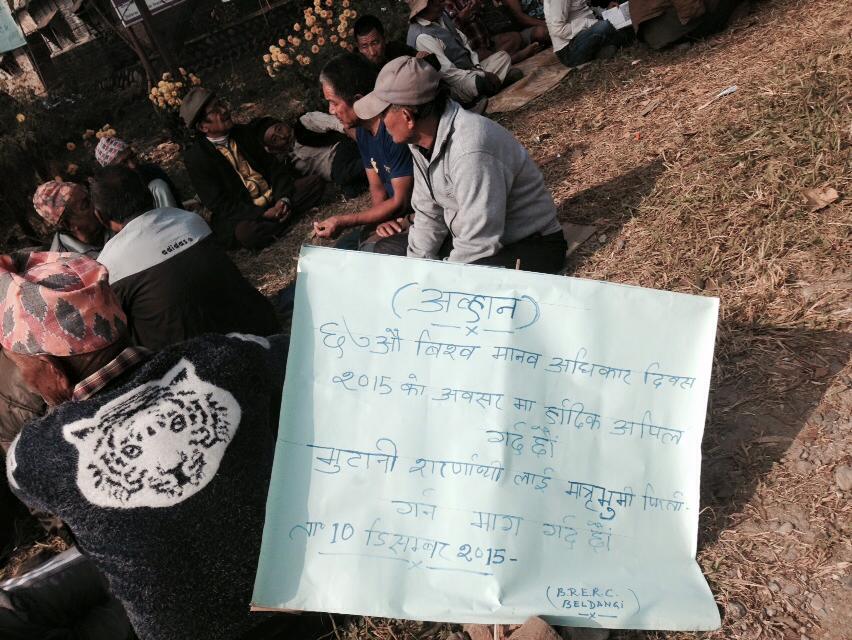 adidas
(अव्हान)
६७ औ बिश्व मानव अधिकार दिवस
२०15 को अवसर मा हार्दिक अपिल
गर्द छौं
भुटानी शरणार्थी लाई मातृभुमी फिर्ता
गर्न माग गर्द छौं
ता 10 डिसम्बर २०15-
(B.R.E.R.C.
BELDANGI)